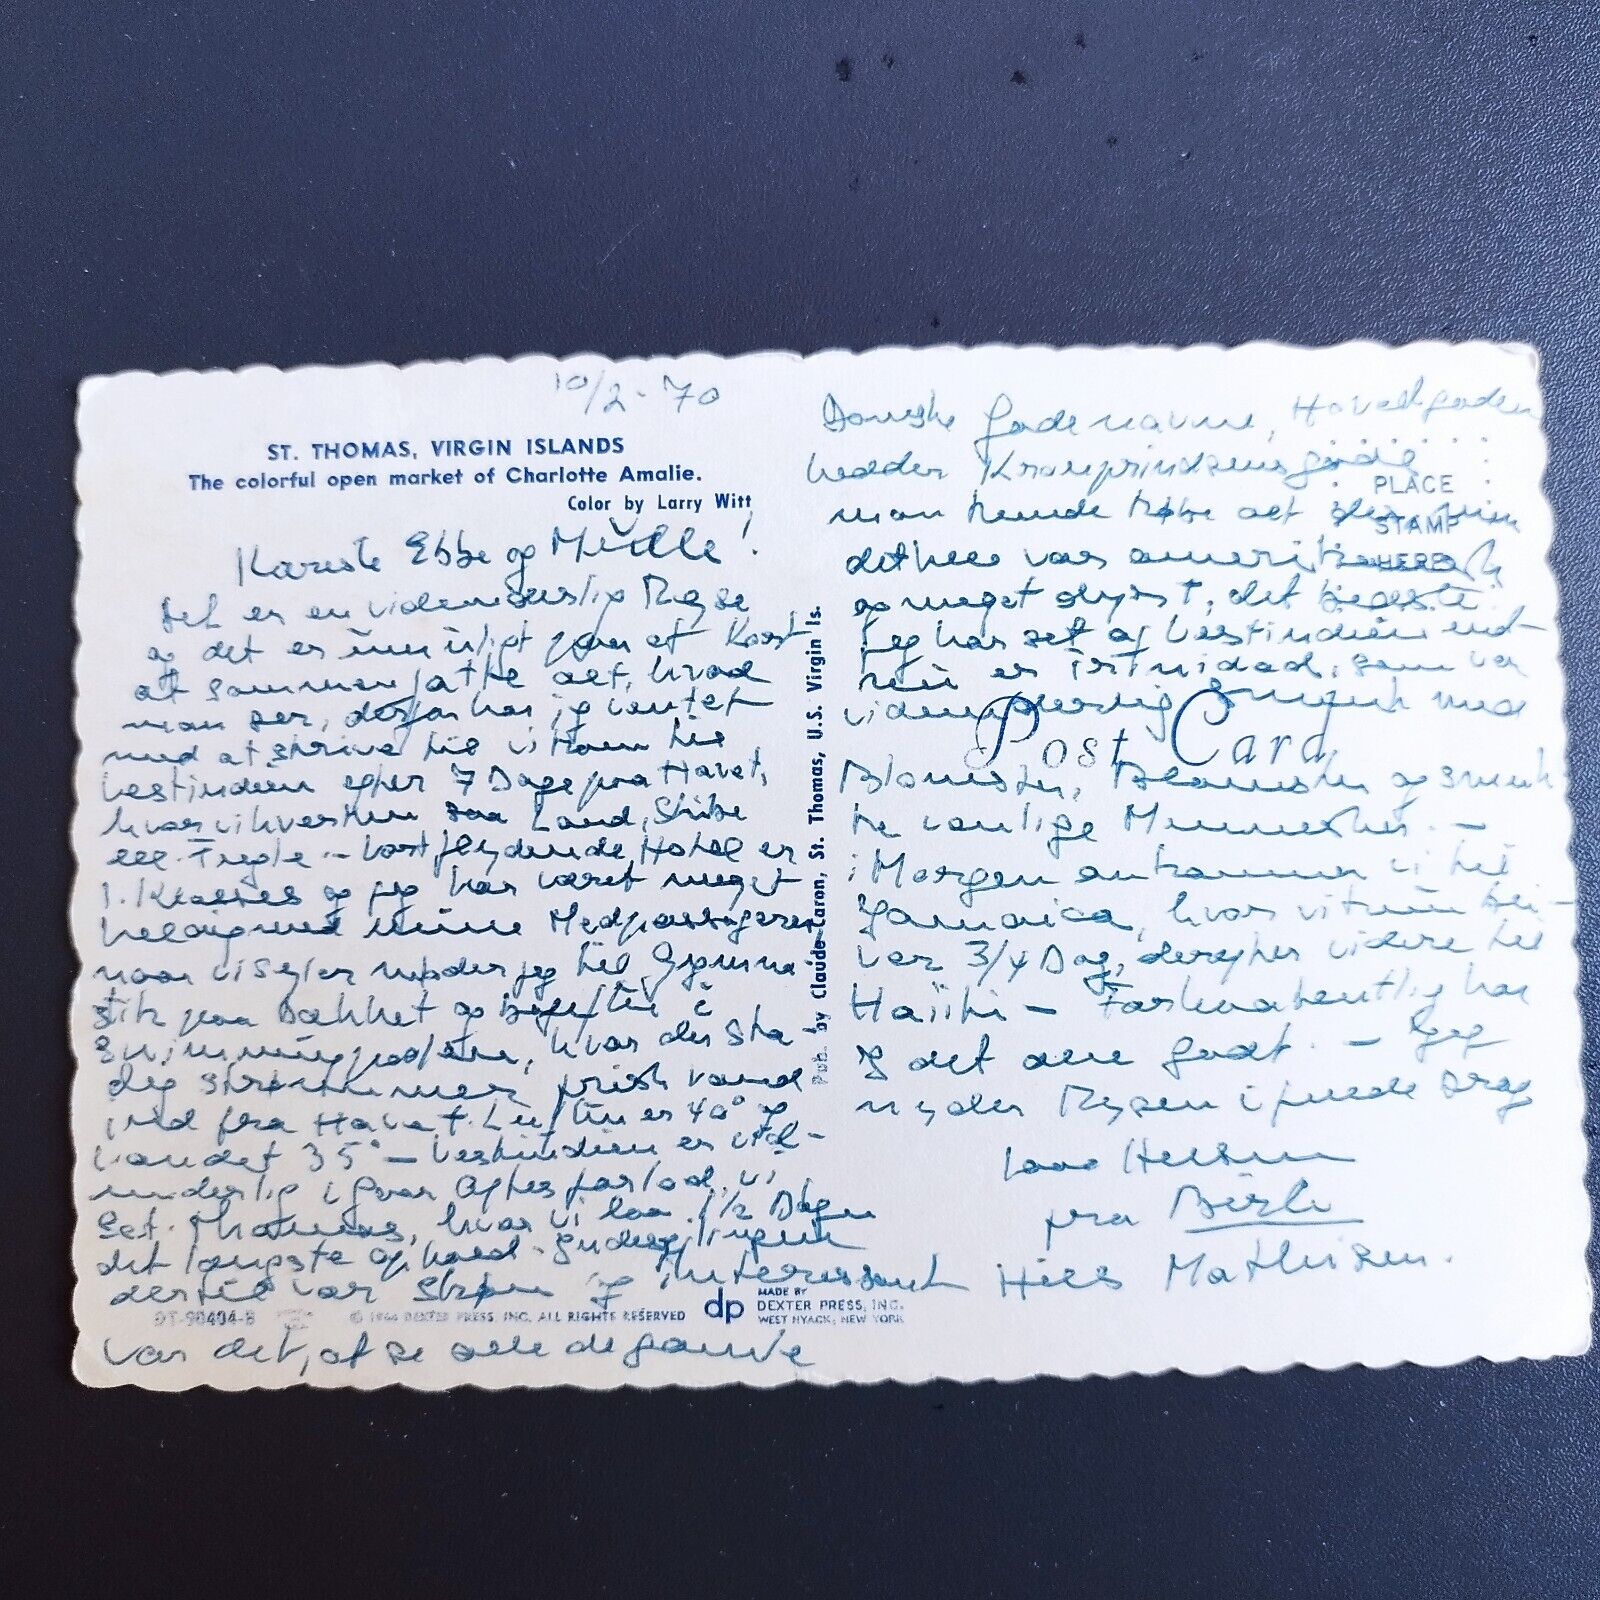 10/2-70
ST. THOMAS, VIRGIN ISLANDS
The colorful open market of Charlotte Amalie.
Color by Larry Witt
Kæreste Ebbe og
det er en vidunderlig Rejse
og det er umuligt paa et Kort
at sammenfatte alt, hvad
man ser, derfor har jeg ventet
med at skrive til vi kom til
Vestindien efter 7 Dage paa Havet,
hvor vi hverken saa Land, Skibe
ell. Fugle. - Vort flydende Hotel er
1. Klasses og jeg har været meget
heldig med mine Medpassagerer
naar vi sejler nyder jeg lidt Gymna-
stik paa Dækket og i
swimmingpoolen, hvor der sta-
dig strømmer frisk Vand
ind fra Havet. Luften er 40° og
Vandet 35° - Vestindien er vid-
underlig i
Sct. Thomas, hvor vi laa 1/2 Dag
det længste Ophold. Indsejlingen
dertil var skøn og interessant
var det, at se alle de gamle
Danske Gadenavne, Hovedgaden
hedder Kronprindsensgade
man kunde købe alt
det hele var amerikansk
og meget dyrt, det bedste
jeg har set af Vestindien ind-
til nu er Trinidad, som var
vidunderlig smuk med
Blomster, Blomster og smuk-
ke venlige Mennesker. -
i Morgen ankommer vi til
Jamaica, hvor vi bli-
ver 3/4 Dag, derefter videre til
Haiiti - Forhaabentlig har
I det alle godt. - Jeg
nyder Rejsen i fulde Drag
fra
Hils Mathisen.
PLACE
STAMP
HERE
Post Card
Pub. by Claude Caron, St. Thomas, U.S. Virgin Is.
DT-90404-B
© DEXTER PRESS, INC. ALL RIGHTS RESERVED
dp
MADE BY
DEXTER PRESS, INC.
WEST NYACK, NEW YORK